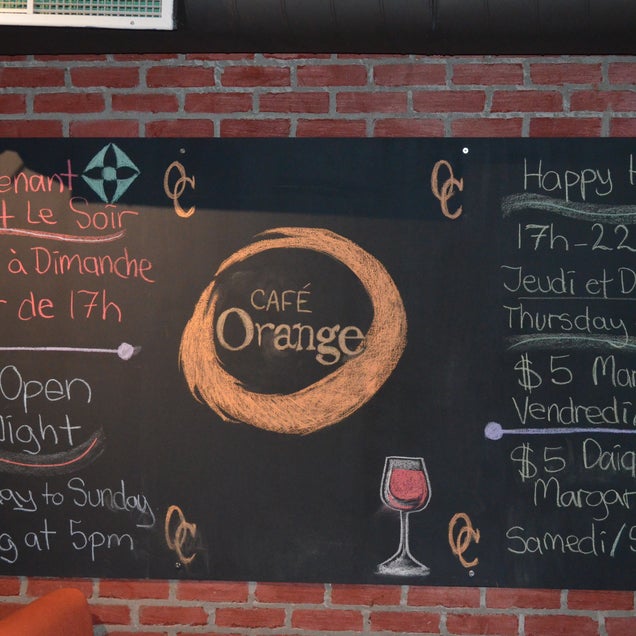 enant
t Le Soir
à Dimanche
r de 17h
Open
Night
ay to Sunday
g at 5pm
OC
OC
CAFÉ
Orange
OC
OC
Happy H
17h-22
Jeudi et D
Thursday
$5 Mar
Vendredi/
$5 Daiq
Margar
Samedi/S